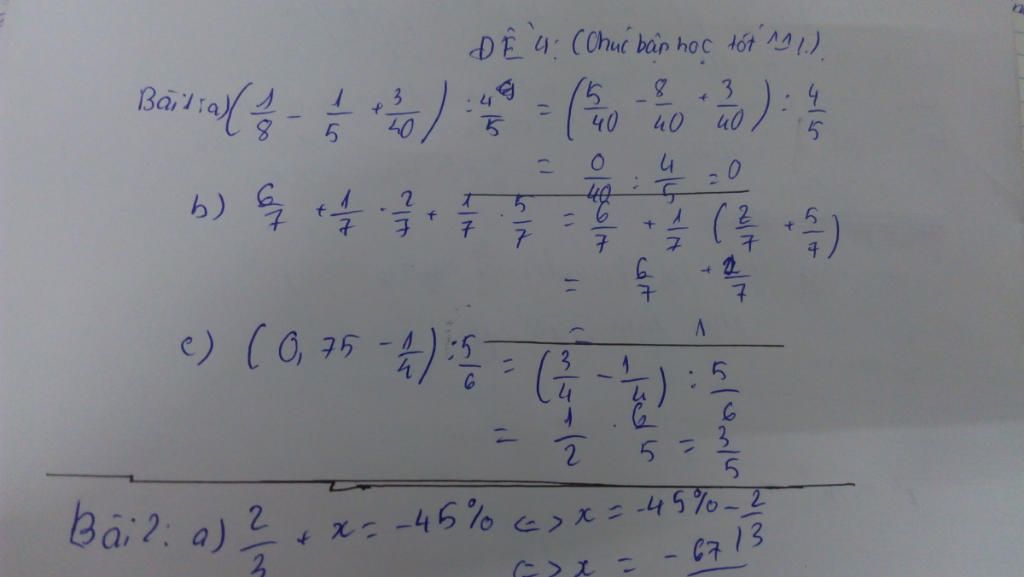 ĐỀ 4: (Chúc bạn học tốt ^^!)
Bài 1: a) (1/8 - 1/5 + 3/40) : 4/5 = (5/40 - 8/40 + 3/40) : 4/5
= 0/40 : 4/5 = 0
b) 6/7 + 1/7 · 2/7 + 1/7 · 5/7 = 6/7 + 1/7 (2/7 + 5/7)
= 6/7 + 1/7
= 1
c) (0,75 - 1/4) : 5/6 = (3/4 - 1/4) : 5/6
= 1/2 · 6/5 = 3/5
Bài 2: a) 2/3 + x = -45% <=> x = -45% - 2/3
<=> x = -67